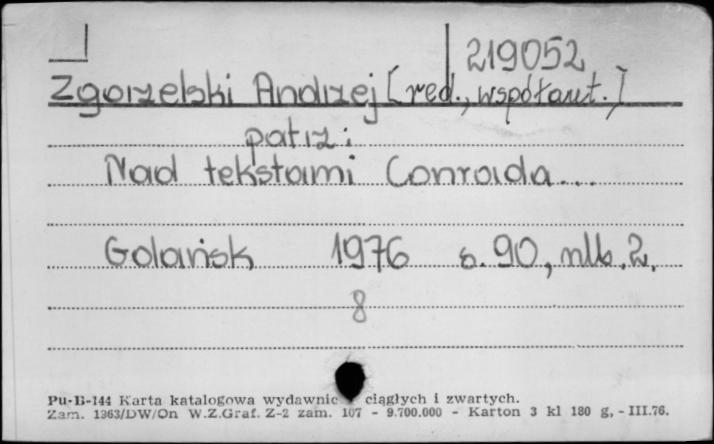 219052
Zgorzelski Andrzej [red., współaut.]
patrz:
Nad tekstami Conrada...
Gdańsk 1976 s. 90, nlb. 2.
8
Pu-B-144 Karta katalogowa wydawnic ciągłych i zwartych.
Zam. 1363/DW/On W.Z.Graf. Z-2 zam. 107 - 9.700.000 - Karton 3 kl 180 g, - III.76.